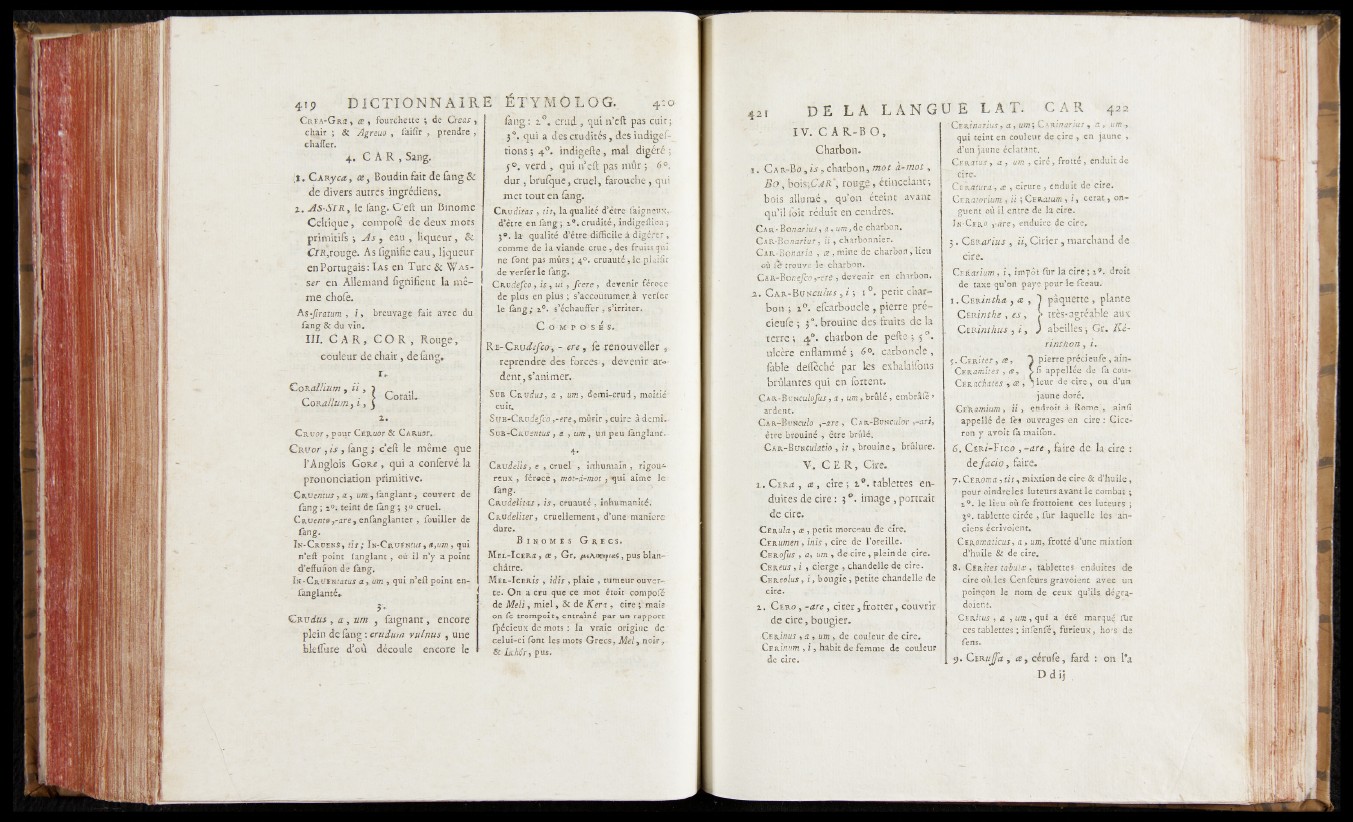 419 DICTIONNAIRE ÉTYMOLOG. 420
CREA-GRA, æ, fourchette ; de Creas,
chair ; & Agreuo, ſaiſir , prendre ,
chaſſer.
4. CAR, Sang.
1. CARYCA, æ, Boudin fait de ſang &
de divers autres ingrédiens.
2. AS-SIR, le ſang. C'eſt un Binome
Celtique, compoſé de deux mots
primitifs ; As, eau , liqueur , &
CIR,rouge. As ſignifie eau, liqueur
en Portugais: IAS en Turc & WAS-
ser en Allemand ſignifient la mê-
me choſe.
AS-ſiratum , i, breuvage fait avec du
ſang & du vin.
III. CAR, COR, Rouge,
couleur de chair, de ſang.
1.
CORALLium , ii , }
CORALLum, i , } Corail.
2.
CRUOR , pour CERUOR & CARUOR.
CRUOR , is , ſang ; c'eſt le même que
l'Anglois GORE , qui a conſervé la
prononciation primitive.
CRUentus , a, um, ſanglant, couvert de
ſang ; 2°. teint de ſang ; 3° cruel.
CRUento,-are, enſanglanter , ſouiller de
ſang.
IN-CRUENS, tis ; IN-CRUENtus, a,um , qui
n'eſt point ſanglant , où il n'y a point
d'effuſion de ſang.
IN-CRUENtatus a , um , qui n'eſt point en-
ſanglanté.
3.
CRUdus , a , um , ſaignant , encore
plein de ſang : crudum vulnus , une
bleſſure d'où découle encore le
ſang: 2°. crud , qui n'eſt pas cuit ;
3°. qui a des crudités, des indigeſ-
tions ; 4°. indigeſte, mal digéré ;
5°. verd , qui n'eſt pas mûr ; 6°.
dur , bruſque, cruel, farouche , qui
met tout en ſang.
CRUditas , tis, la qualité d'être ſaigneux,
d'être en ſang ; 2°. crudité, indigeſtion ;
3°. la qualité d'être difficile à digérer ,
comme de la viande crue , des fruits qui
ne ſont pas mûrs ; 4°. cruauté , le plaiſir
de verſer le ſang.
CRUdeſco , is , ui , ſcere , devenir féroce
de plus en plus ; s'accoutumer à verſer
le ſang ; 2°. s'échauffer , s'irriter.
COMPOSÉS.
RE-CRUdeſco, - ere , ſe renouveller ,
reprendre des forces , devenir ar-
dent , s'animer.
SUB CRUdus, a , um, demi-crud, moitié
cuit.
SUB-CRUdeſco ,-ere, mûrir , cuire à demi.
SUB-CRUentus , a , um , un peu ſanglant.
4.
CRUdelis, e , cruel , inhumain , rigou-
reux , féroce , mot-à-mot , qui aime le
ſang.
CRUdelitas , is , cruauté , inhumanité.
CRUdeliter, cruellement, d'une maniere
dure.
BINOMES GRECS.
MEL-ICERA, æ , Gr. , pus blan-
châtre.
MEL-ICERIS , idis , plaie , tumeur ouver-
te. On a cru que ce mot étoit compoſé
de Meli , miel , & de Kera , cire ; mais
on ſe trompoit, entraîné par un rapport
ſpécieux de mots : la vraie origine de
celui-ci ſont les mots Grecs, Mel , noir,
& , pus.
421 DE LA LANGUE LAT. CAR 422
IV. CAR-BO,
Charbon.
1. CAR-BO, is , charbon, mot à-mot ,
BO , bois; CAR , rouge , étincelant;
bois allumé , qu'on éteint avant
qu'il ſoit réduit en cendres.
CAR-BOnarius, a , um, de charbon.
CAR-BOnarius , ii , charbonnier.
CAR-BOnaria , æ , mine de charbon, lieu
où ſe trouve le charbon.
CAR-BOneſco ,-ere , devenir en charbon.
2. CAR-BUNCulus , i ; 1°. petit char-
bon ; 2°. eſcarboucle , pierre pré-
cieuſe ; 3°. brouine des fruits de la
terre ; 4°. charbon de peſte ; 5°.
ulcère enflammé ; 6°. carboncle ,
ſable deſſéché par les exhalaiſons
brûlantes qui en ſortent.
CAR-BUNCuloſus , a , um , brûlé , embrâſé ,
ardent.
CAR-BUNCulo ,-are , CAR-BUNCulor ,-ari,
être brouiné , être brûlé.
CAR-BUNCulatio , is , brouine , brûlure.
V. CER, Cire.
1. CERA , æ , cire ; 2°. tablettes en-
duites de cire : 3°. image , portrait
de cire.
CERula , æ , petit morceau de cire.
CERumen , inis , cire de l'oreille.
CERoſus , a , um , de cire , plein de cire.
CEReus , i , cierge , chandelle de cire.
CEReolus , i , bougie , petite chandelle de
cire.
2. CERO , -are , cirer , frotter , couvrir
de cire , bougier.
CERinus , a , um , de couleur de cire.
CERinum , i , habit de femme de couleur
de cire.
CERinarius , a , um ; CARinarius , a , um ,
qui teint en couleur de cire , en jaune ,
d'un jaune éclatant.
CERatus , a , um , ciré , frotté , enduit de
cire.
CERatura , æ , cirure , enduit de cire.
CERatorium , ii ; CERatum , i , cerat , on-
guent où il entre de la cire.
IN-CERO ,-are , enduire de cire.
3. CERarius , ii , Cirier , marchand de
cire.
CERarium , i , impôt ſur la cire ; 2°. droit
de taxe qu'on paye pour le ſceau.
1. CERintha , æ , } pâquette , plante
CERinthe , es , } très-agréable aux
CERinthus , i , } abeilles ; Gr. Ké-
rinthon , i.
5. CERites , æ , } pierre précieuſe , ain-
CERamites , æ , } ſi appellée de ſa cou-
CERachates , æ , } leur de cire , ou d'un
jaune doré.
CERamium , ii , endroit à Rome , ainſi
appellé de ſes ouvrages en cire : Cice-
ron y avoit ſa maiſon.
6. CERI-FICO , -are , faire de la cire :
de facio , faire.
7. CERoma , tis , mixtion de cire & d'huile ,
pour oindre les luteurs avant le combat ;
2°. le lieu où ſe frottoient ces luteurs ;
3°. tablette cirée , ſur laquelle les an-
ciens écrivoient.
CERomaticus, a , um, frotté d'une mixtion
d'huile & de cire.
8. CERites tabulæ , tablettes enduites de
cire où les Cenſeurs gravoient avec un
poinçon le nom de ceux qu'ils dégra-
doient.
CERitus , a , um , qui a été marqué ſur
ces tablettes ; inſenſé, furieux, hors de
ſens.
9. CERUſſa , æ , céruſe , fard : on l'a
D d ij